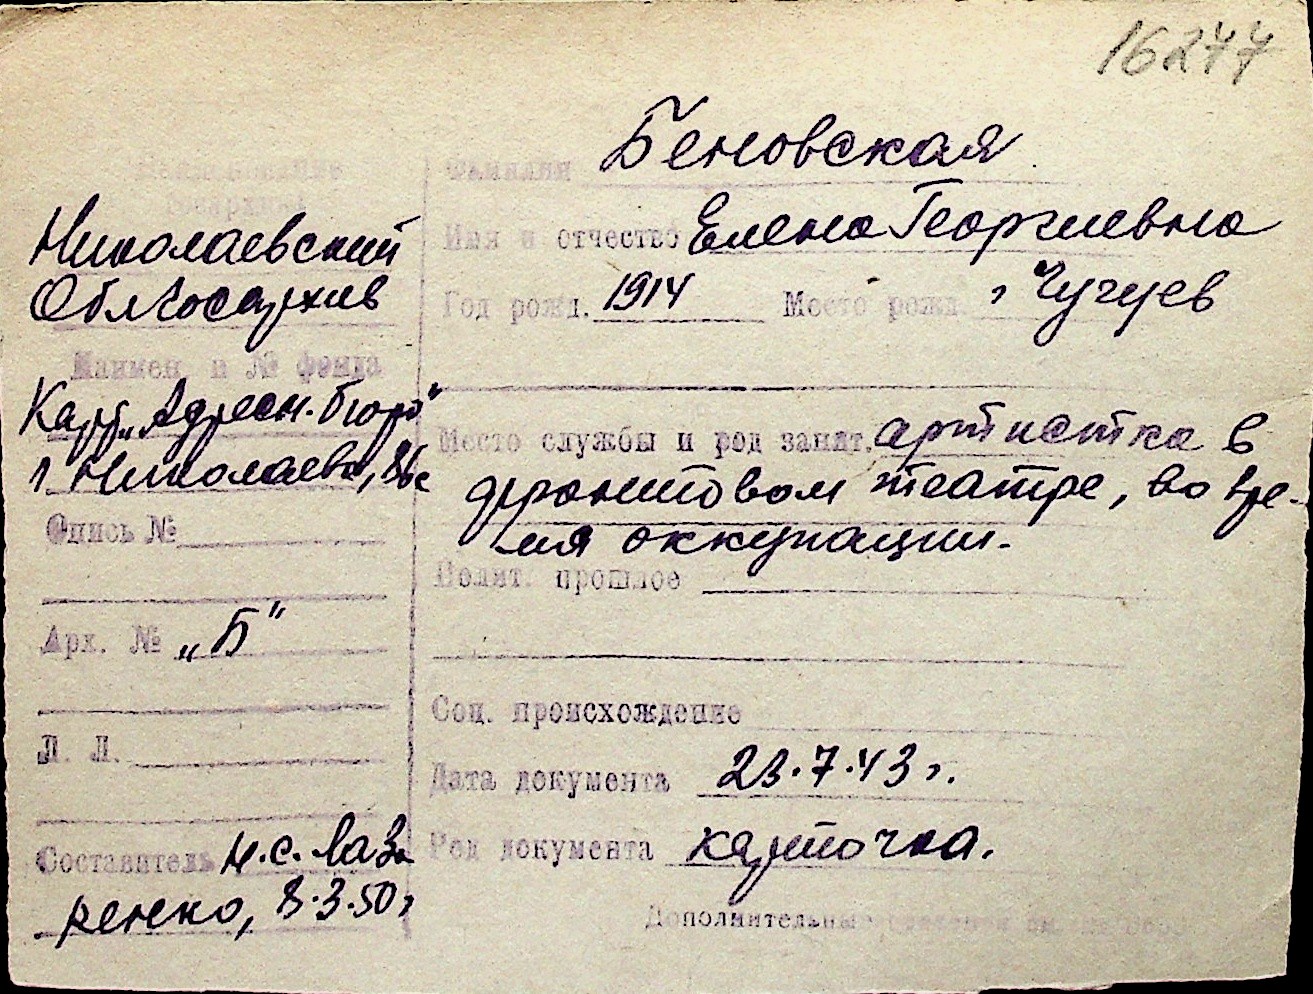 16277
Наименование
госархива
Николаевский
Облгосархив
Наимен. и № фонда
Карт. „Адресн. бюро"
г. Николаева,
Опись №
Арх. № „Б"
Л. Л.
Составитель н.с. Лаза
ренко, 8.3.50 г
Фамилия Беновская
Имя и отчество Елена Георгиевна
Год рожд. 1914 Место рожд. г Чугуев
Место службы и род занят. артистка в
фронтовом театре, во вре-
мя оккупации.
Полит. прошлое
Соц. происхождение
Дата документа 23.7.43 г.
Род документа карточка.
Дополнительные сведения см. на обор.